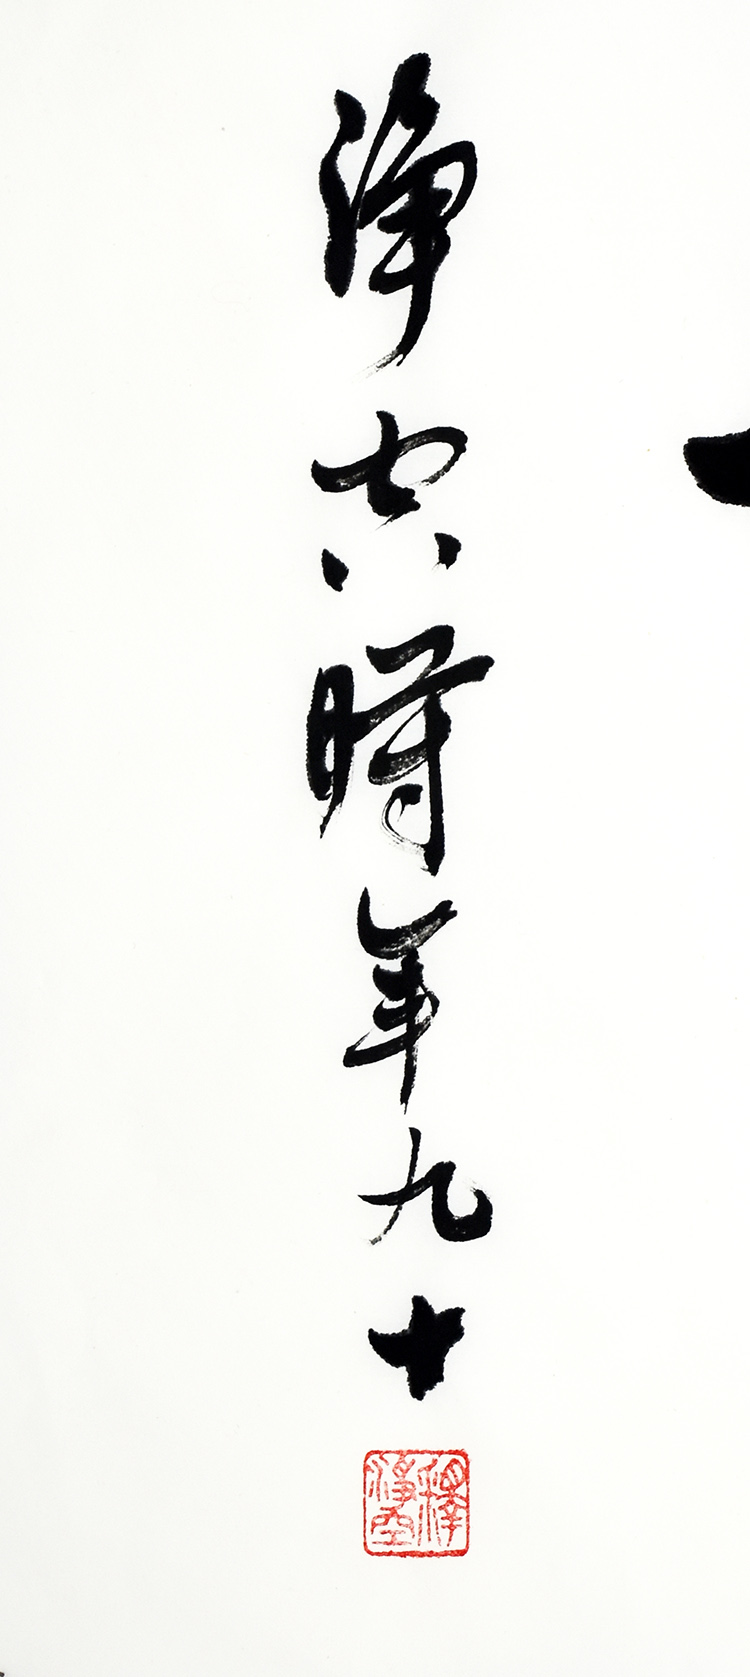 淨空時年九十
釋淨空